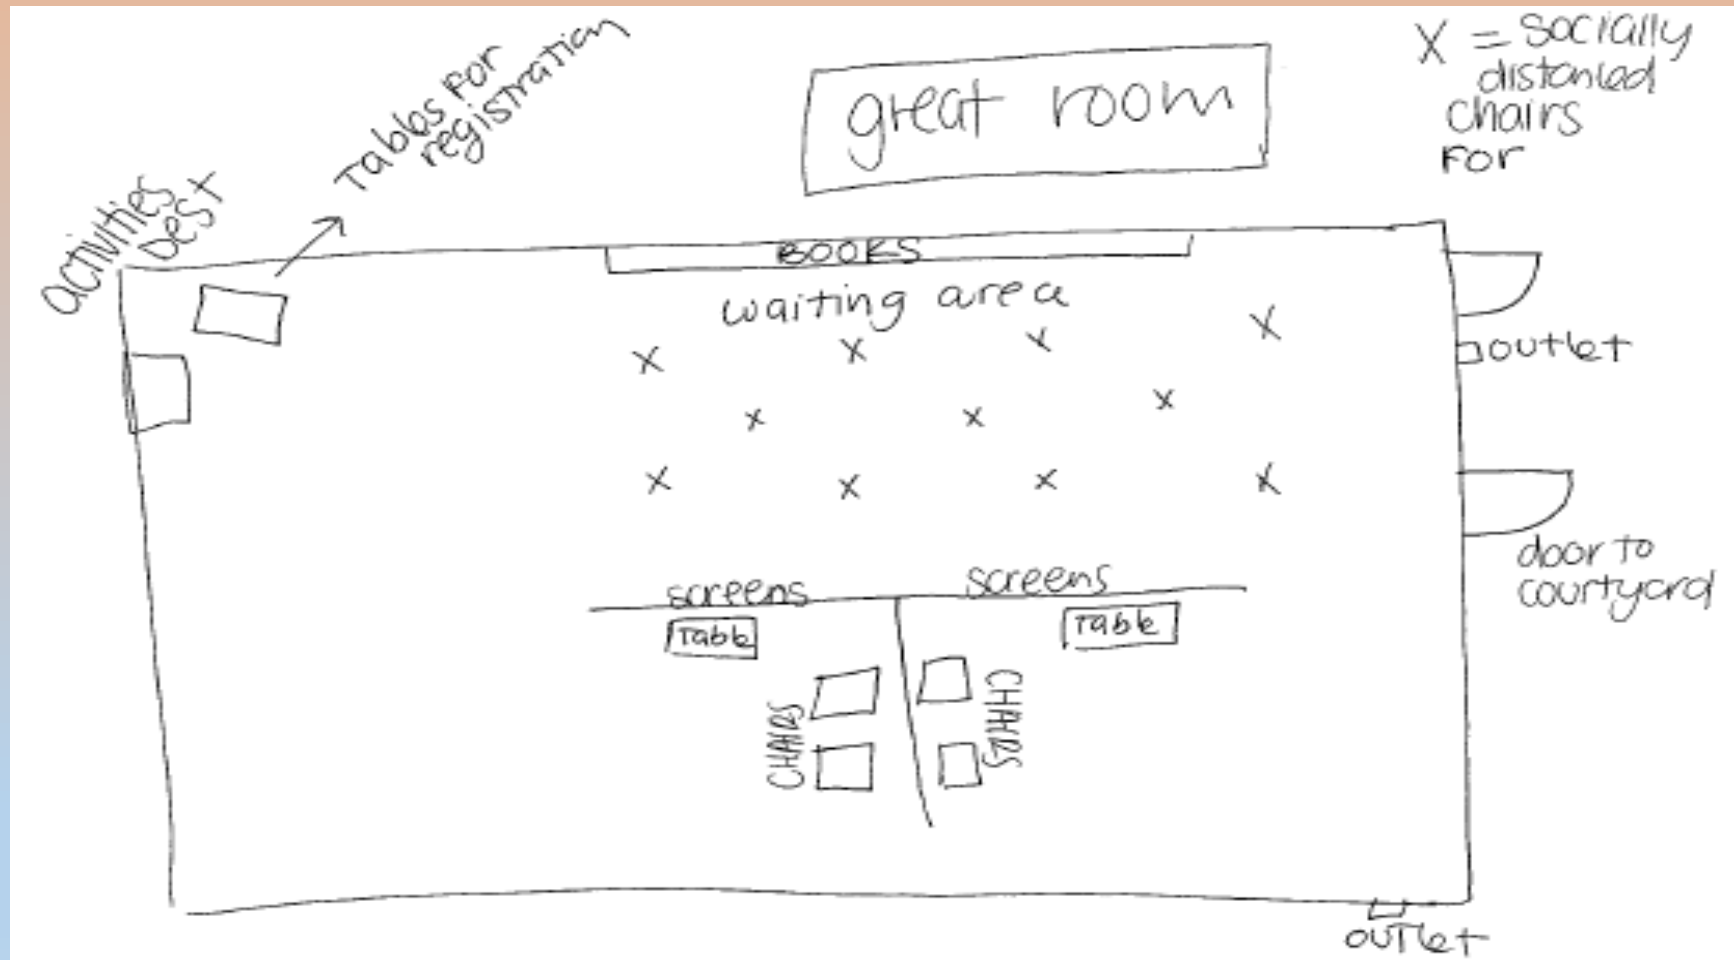 Tables for
registration
great room
X = Socially
distanced
chairs
FOR
activities
Desk
BOOKS
waiting area
X X X X
X X X
X X X X
outlet
door to
courtyard
screens
screens
Table
Table
CHAIRS
CHAIRS
outlet